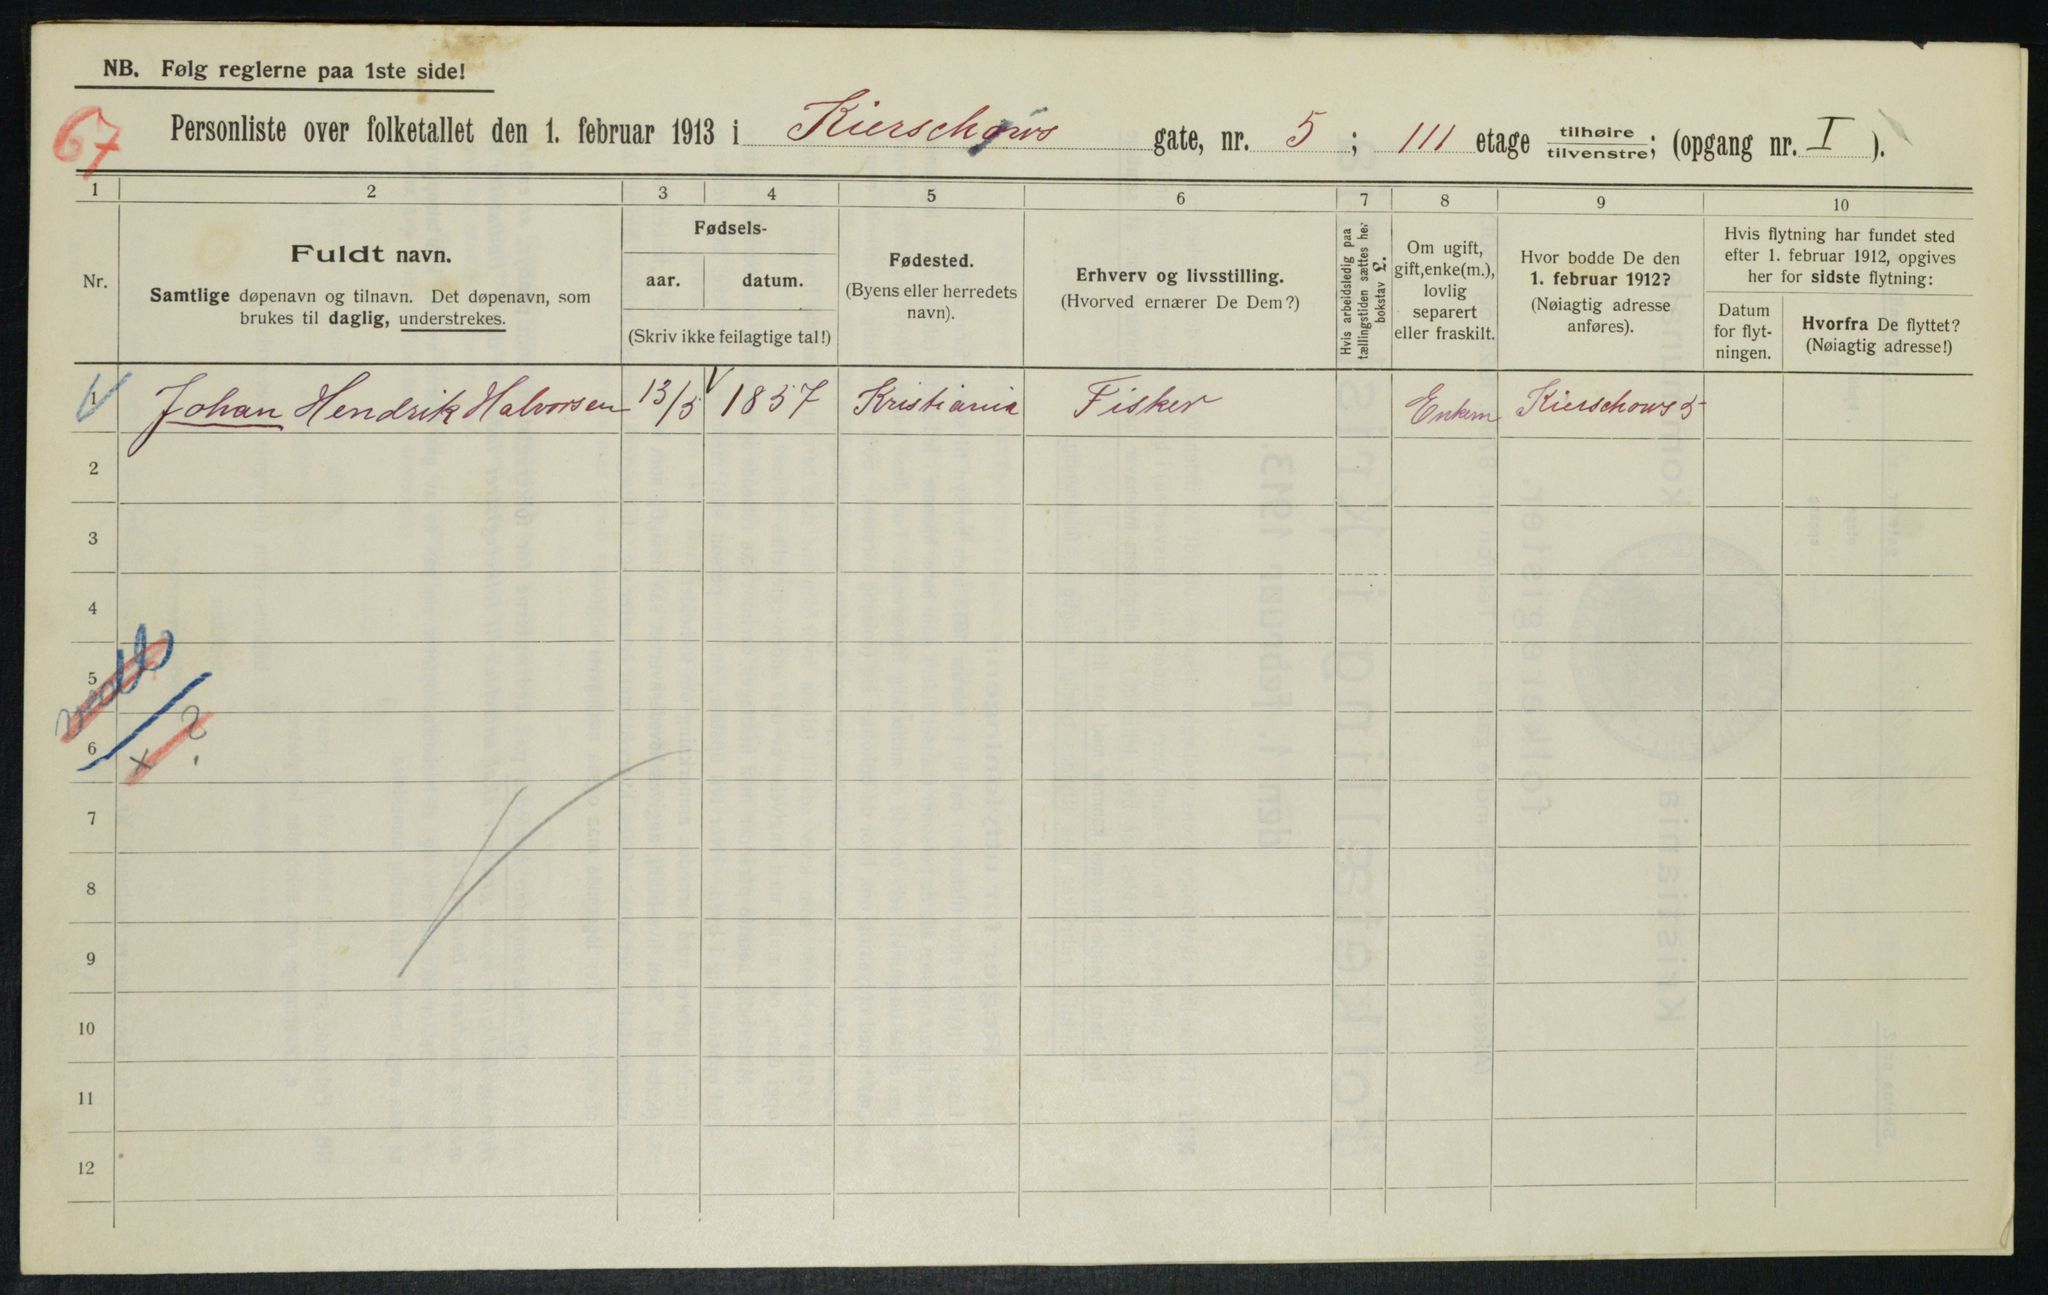 NB. Følg reglerne paa 1ste side!
67
Personliste over folketallet den 1. februar 1913 i Kierschows gate, nr. 5; 111 etage tilhøire/tilvenstre; (opgang nr. I).
1 2 3 4 5 6 7 8 9 10
Nr.
Fuldt navn.
Samtlige døpenavn og tilnavn. Det døpenavn, som
brukes til daglig, understrekes.
Fødsels-
aar.
datum.
(Skriv ikke feilagtige tal!)
Fødested.
(Byens eller herredets
navn).
Erhverv og livsstilling.
(Hvorved ernærer De Dem?)
Hvis arbeidsledig paa
tællingstiden sættes her
bokstav L.
Om ugift,
gift, enke(m.),
lovlig
separert
eller fraskilt.
Hvor bodde De den
1. februar 1912?
(Nøiagtig adresse
anføres).
Hvis flytning har fundet sted
efter 1. februar 1912, opgives
her for sidste flytning:
Datum
for flyt-
ningen.
Hvorfra De flyttet?
(Nøiagtig adresse!)
1 Johan Hendrik Halvorsen 13/5 1857 Kristiania Fisker Enkem Kierschows 5
2
3
4
5
6
x ?
7
8
9
10
11
12